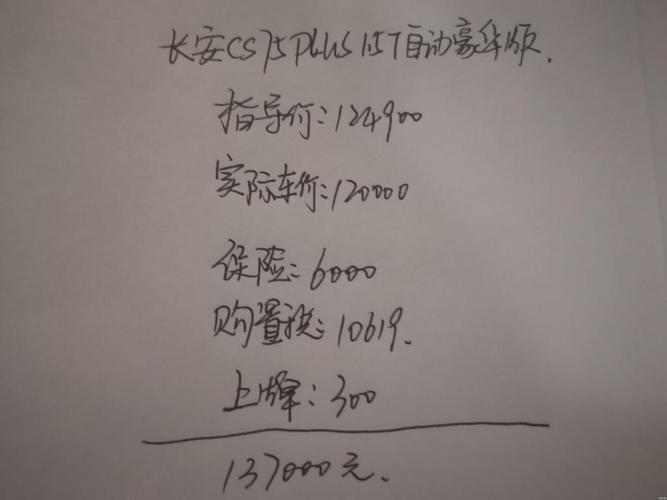 长安CS75PLUS 1.5T自动豪华版.
指导价:124900
实际车价:120000
保险:6000
购置税:10619.
上牌:300
137000元.